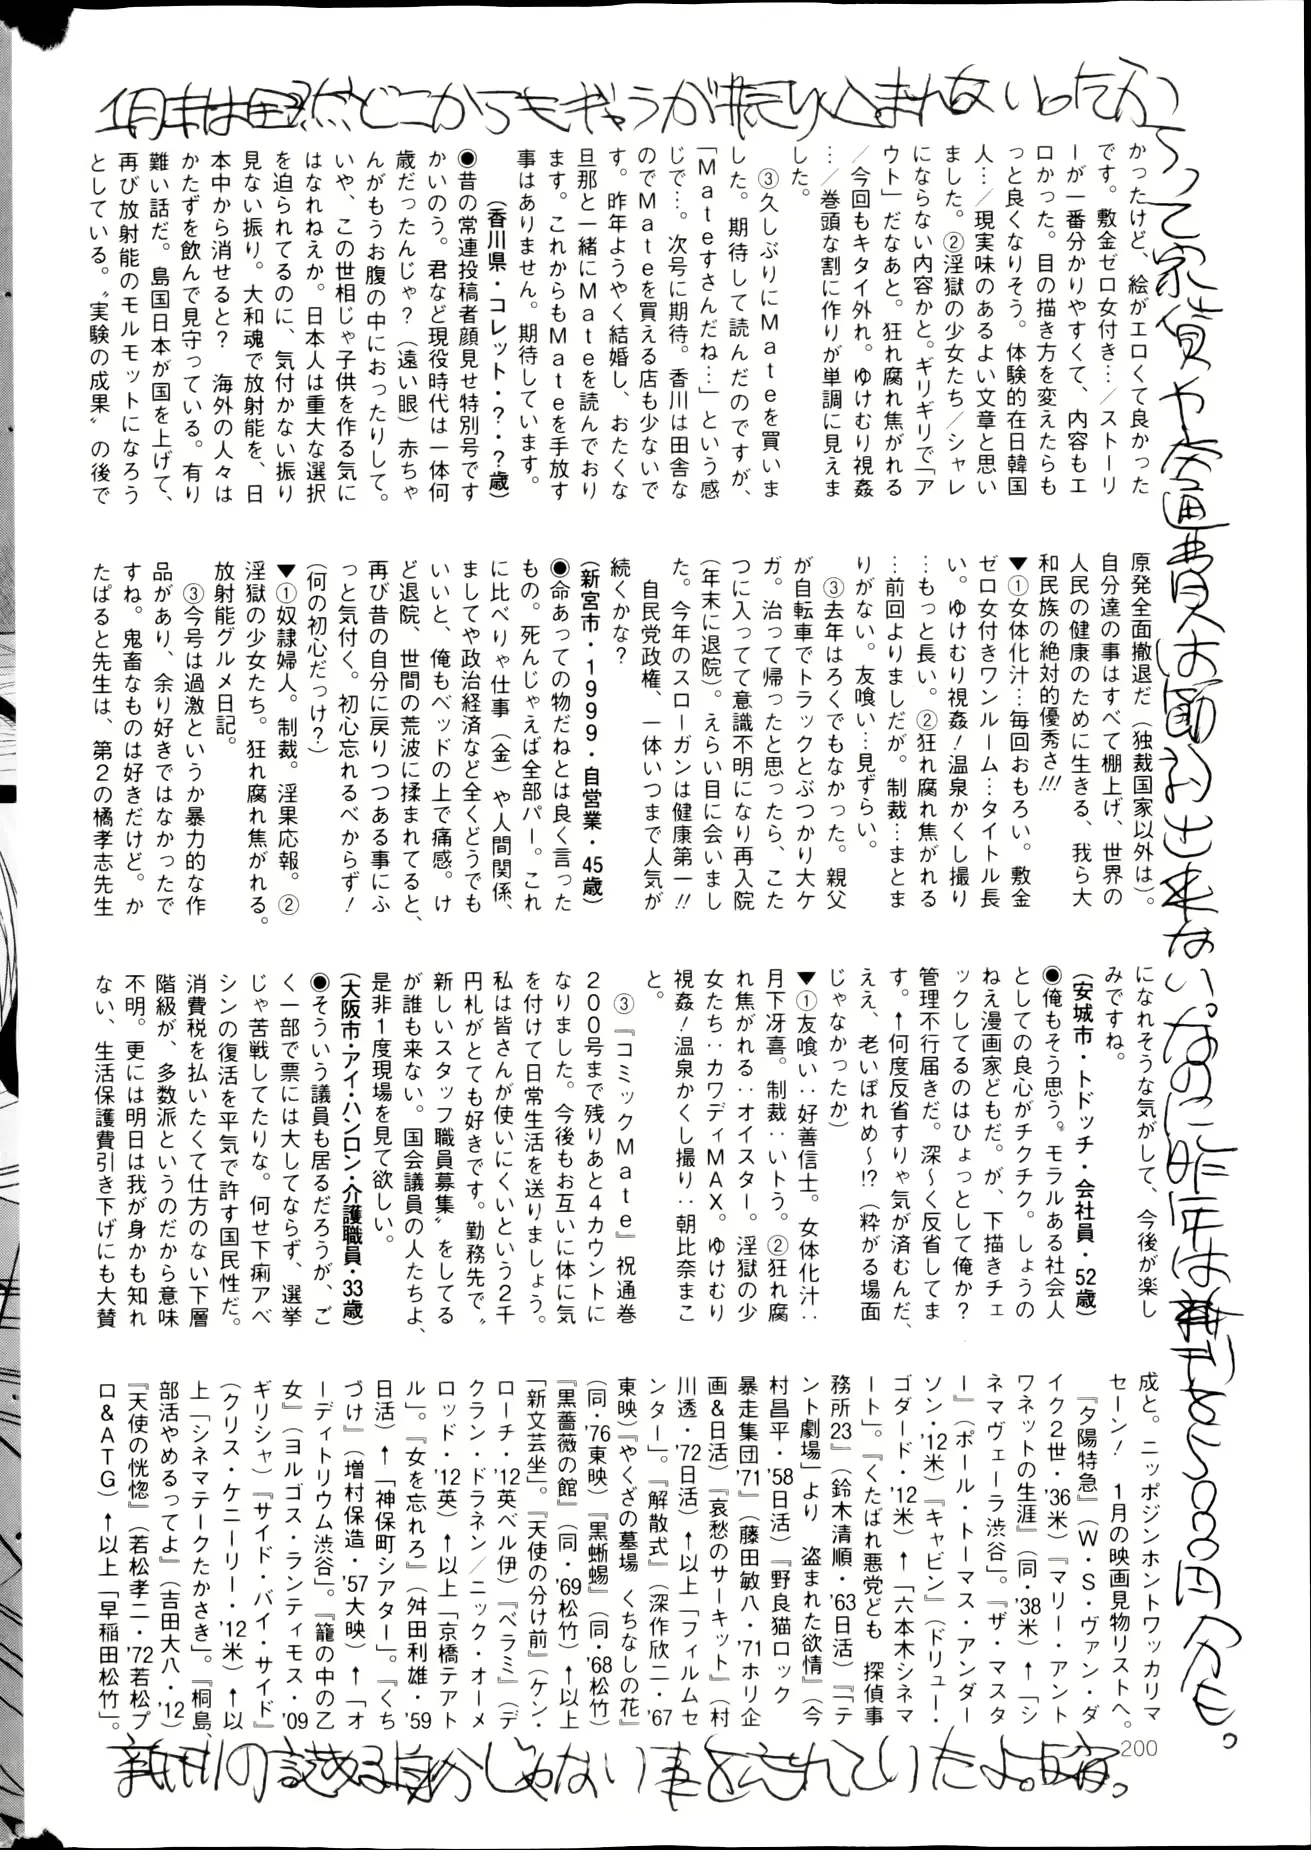 1月末は全然どこからもギャラが振り込まれないったから
って家賃や交通費は節約出来ない。なのに昨年は
新刊の読める身分じゃない事を忘れていたよ。
かったけど、絵がエロくて良かった
です。敷金ゼロ女付き…/ストーリ
ーが一番分かりやすくて、内容もエ
ロかった。目の描き方を変えたらも
っと良くなりそう。体験的在日韓国
人…/現実味のあるよい文章と思い
ました。②淫獄の少女たち/シャレ
にならない内容かと。ギリギリで「ア
ウト」だなあと。狂れ腐れ焦がれる
/今回もキタイ外れ。ゆけむり視姦
…/巻頭な割に作りが単調に見えま
した。
③久しぶりにMateを買いま
した。期待して読んだのですが、
「Mateすさんだね…」という感
じで…。次号に期待。香川は田舎な
のでMateを買える店も少ないで
す。昨年ようやく結婚し、おたくな
旦那と一緒にMateを読んでおり
ます。これからもMateを手放す
事はありません。期待しています。
(香川県・コレット・?・?歳)
●昔の常連投稿者顔見せ特別号です
かいのう。君など現役時代は一体何
歳だったんじゃ?(遠い眼)赤ちゃ
んがもうお腹の中におったりして。
いや、この世相じゃ子供を作る気に
はなれねえか。日本人は重大な選択
を迫られてるのに、気付かない振り
見ない振り。大和魂で放射能を、日
本中から消せると? 海外の人々は
かたずを飲んで見守っている。有り
難い話だ。島国日本が国を上げて、
再び放射能のモルモットになろう
としている。〝実験の成果〟の後で
原発全面撤退だ(独裁国家以外は)。
自分達の事はすべて棚上げ、世界の
人民の健康のために生きる、我ら大
和民族の絶対的優秀さ!!!
▼①女体化汁…毎回おもろい。敷金
ゼロ女付きワンルーム…タイトル長
い。ゆけむり視姦!温泉かくし撮り
…もっと長い。②狂れ腐れ焦がれる
…前回よりましだが。制裁…まとま
りがない。友喰い…見ずらい。
③去年はろくでもなかった。親父
が自転車でトラックとぶつかり大ケ
ガ。治って帰ったと思ったら、こた
つに入ってて意識不明になり再入院
(年末に退院)。えらい目に会いまし
た。今年のスローガンは健康第一!!
自民党政権、一体いつまで人気が
続くかな?
(新宮市・1999・自営業・45歳)
●命あっての物だねとは良く言った
もの。死んじゃえば全部パー。これ
に比べりゃ仕事(金)や人間関係、
ましてや政治経済など全くどうでも
いいと、俺もベッドの上で痛感。け
ど退院、世間の荒波に揉まれてると、
再び昔の自分に戻りつつある事にふ
っと気付く。初心忘れるべからず!
(何の初心だっけ?)
▼①奴隷婦人。制裁。淫果応報。②
淫獄の少女たち。狂れ腐れ焦がれる。
放射能グルメ日記。
③今号は過激というか暴力的な作
品があり、余り好きではなかったで
すね。鬼畜なものは好きだけど。か
たぱると先生は、第2の橘孝志先生
になれそうな気がして、今後が楽し
みですね。
(安城市・トドッチ・会社員・52歳)
●俺もそう思う。モラルある社会人
としての良心がチクチク。しょうの
ねえ漫画家どもだ。が、下描きチェ
ックしてるのはひょっとして俺か?
管理不行届きだ。深〜く反省してま
す。↑何度反省すりゃ気が済むんだ、
ええ、老いぼれめ〜!?(粋がる場面
じゃなかったか)
▼①友喰い‥好善信士。女体化汁‥
月下冴喜。制裁‥いトう。②狂れ腐
れ焦がれる‥オイスター。淫獄の少
女たち‥カワディMAX。ゆけむり
視姦!温泉かくし撮り‥朝比奈まこ
と。
③『コミックMate』祝通巻
200号まで残りあと4カウントに
なりました。今後もお互いに体に気
を付けて日常生活を送りましょう。
私は皆さんが使いにくいという2千
円札がとても好きです。勤務先で〝
新しいスタッフ職員募集〟をしてる
が誰も来ない。国会議員の人たちよ、
是非1度現場を見て欲しい。
(大阪市・アイ・ハンロン・介護職員・33歳)
●そういう議員も居るだろうが、ご
く一部で票には大してならず、選挙
じゃ苦戦してたりな。何せ下痢アベ
シンの復活を平気で許す国民性だ。
消費税を払いたくて仕方のない下層
階級が、多数派というのだから意味
不明。更には明日は我が身かも知れ
ない、生活保護費引き下げにも大賛
成と。ニッポジンホントワッカリマ
セーン! 1月の映画見物リストへ。
『夕陽特急』(W・S・ヴァン・ダ
イク2世・'36米)『マリー・アント
ワネットの生涯』(同・'38米)↑「シ
ネマヴェーラ渋谷」。『ザ・マスタ
ー』(ポール・トーマス・アンダー
ソン・'12米)『キャビン』(ドリュー・
ゴダード・'12米)↑「六本木シネマ
ート」。『くたばれ悪党ども 探偵事
務所23』(鈴木清順・'63日活)『テ
ント劇場』より 盗まれた欲情』(今
村昌平・'58日活)『野良猫ロック
暴走集団'71』(藤田敏八・'71ホリ企
画&日活)『哀愁のサーキット』(村
川透・'72日活)↑以上「フィルムセ
ンター」。『解散式』(深作欣二・'67
東映)『やくざの墓場 くちなしの花』
(同・'76東映)『黒蜥蜴』(同・'68松竹)
『黒薔薇の館』(同・'69松竹)↑以上
「新文芸坐」。『天使の分け前』(ケン・
ローチ・'12英ベル伊)『ベラミ』(デ
クラン・ドラネン/ニック・オーメ
ロッド・'12英)↑以上「京橋テアト
ル」。『女を忘れろ』(舛田利雄・'59
日活)↑「神保町シアター」。『くち
づけ』(増村保造・'57大映)↑「オ
ーディトリウム渋谷」。『籠の中の乙
女』(ヨルゴス・ランティモス・'09
ギリシャ)『サイド・バイ・サイド』
(クリス・ケニーリー・'12米)↑以
上「シネマテークたかさき」。『桐島、
部活やめるってよ』(吉田大八・'12)
『天使の恍惚』(若松孝二・'72若松プ
ロ&ATG)↑以上「早稲田松竹」。
200